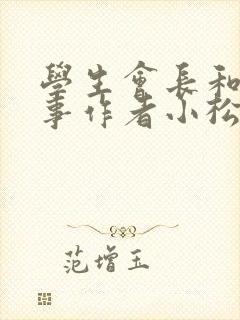 學生會長和
事作者小松
范增玉